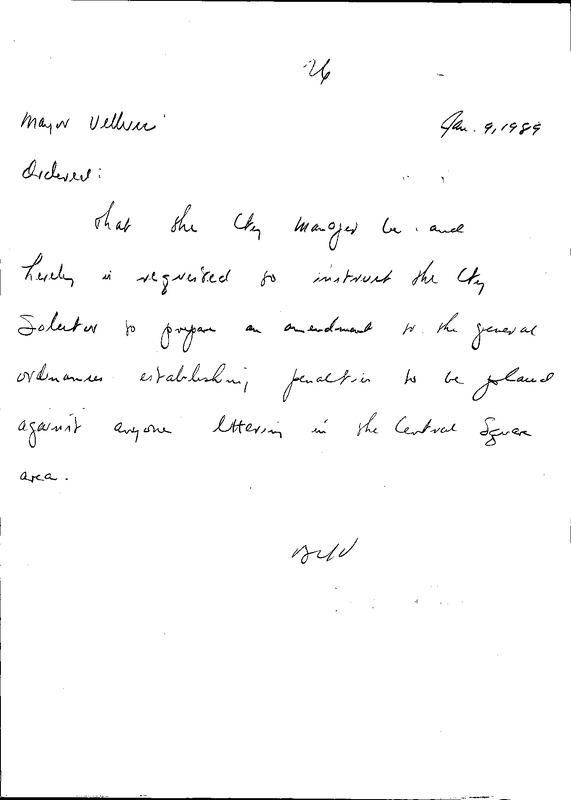 26
Mayor Vellucci Jan. 9, 1989
Ordered:
That the City Manager be and
hereby is requested to instruct the City
Solicitor to prepare an amendment to the general
ordinances establishing penalties to be placed
against anyone littering in the Central Square
area.